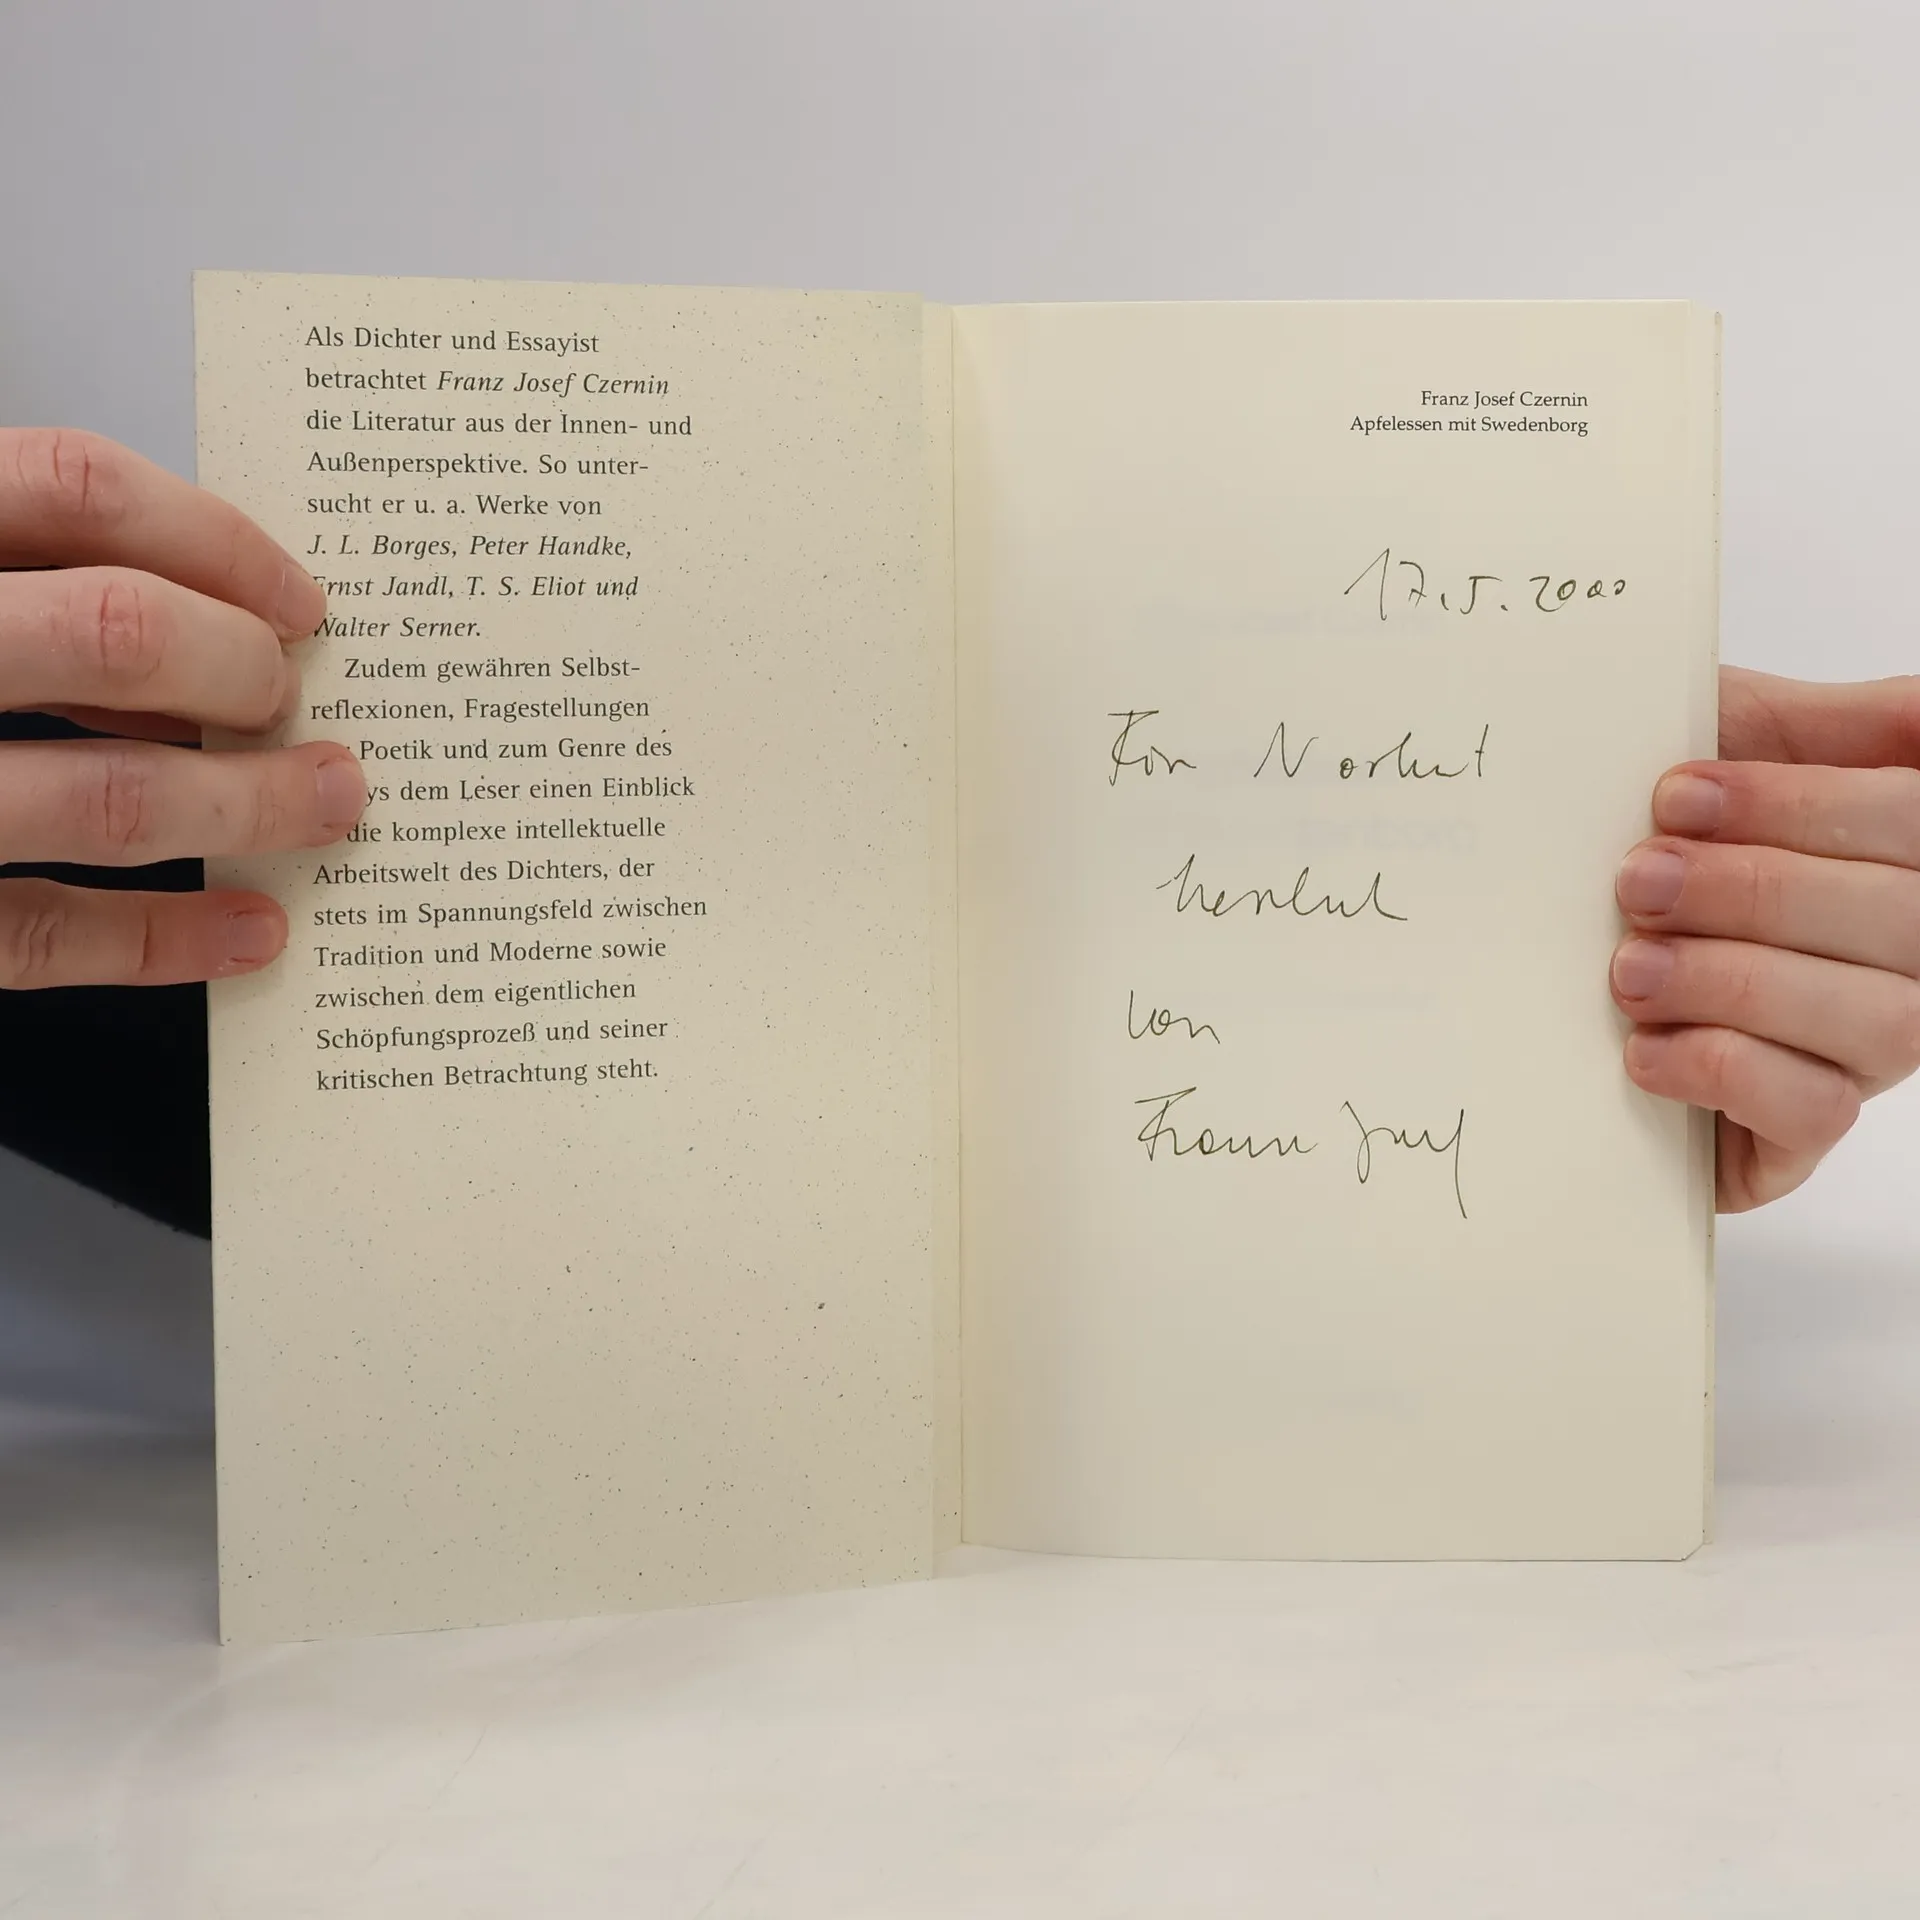 Als Dichter und Essayist
betrachtet Franz Josef Czernin
die Literatur aus der Innen- und
Außenperspektive. So unter-
sucht er u. a. Werke von
J. L. Borges, Peter Handke,
Ernst Jandl, T. S. Eliot und
Walter Serner.
Zudem gewähren Selbst-
reflexionen, Fragestellungen
Poetik und zum Genre des
ys dem Leser einen Einblick
die komplexe intellektuelle
Arbeitswelt des Dichters, der
stets im Spannungsfeld zwischen
Tradition und Moderne sowie
zwischen dem eigentlichen
Schöpfungsprozeß und seiner
kritischen Betrachtung steht.
Franz Josef Czernin
Apfelessen mit Swedenborg
17.5.2000
Für Norbert
von
Franz Josef